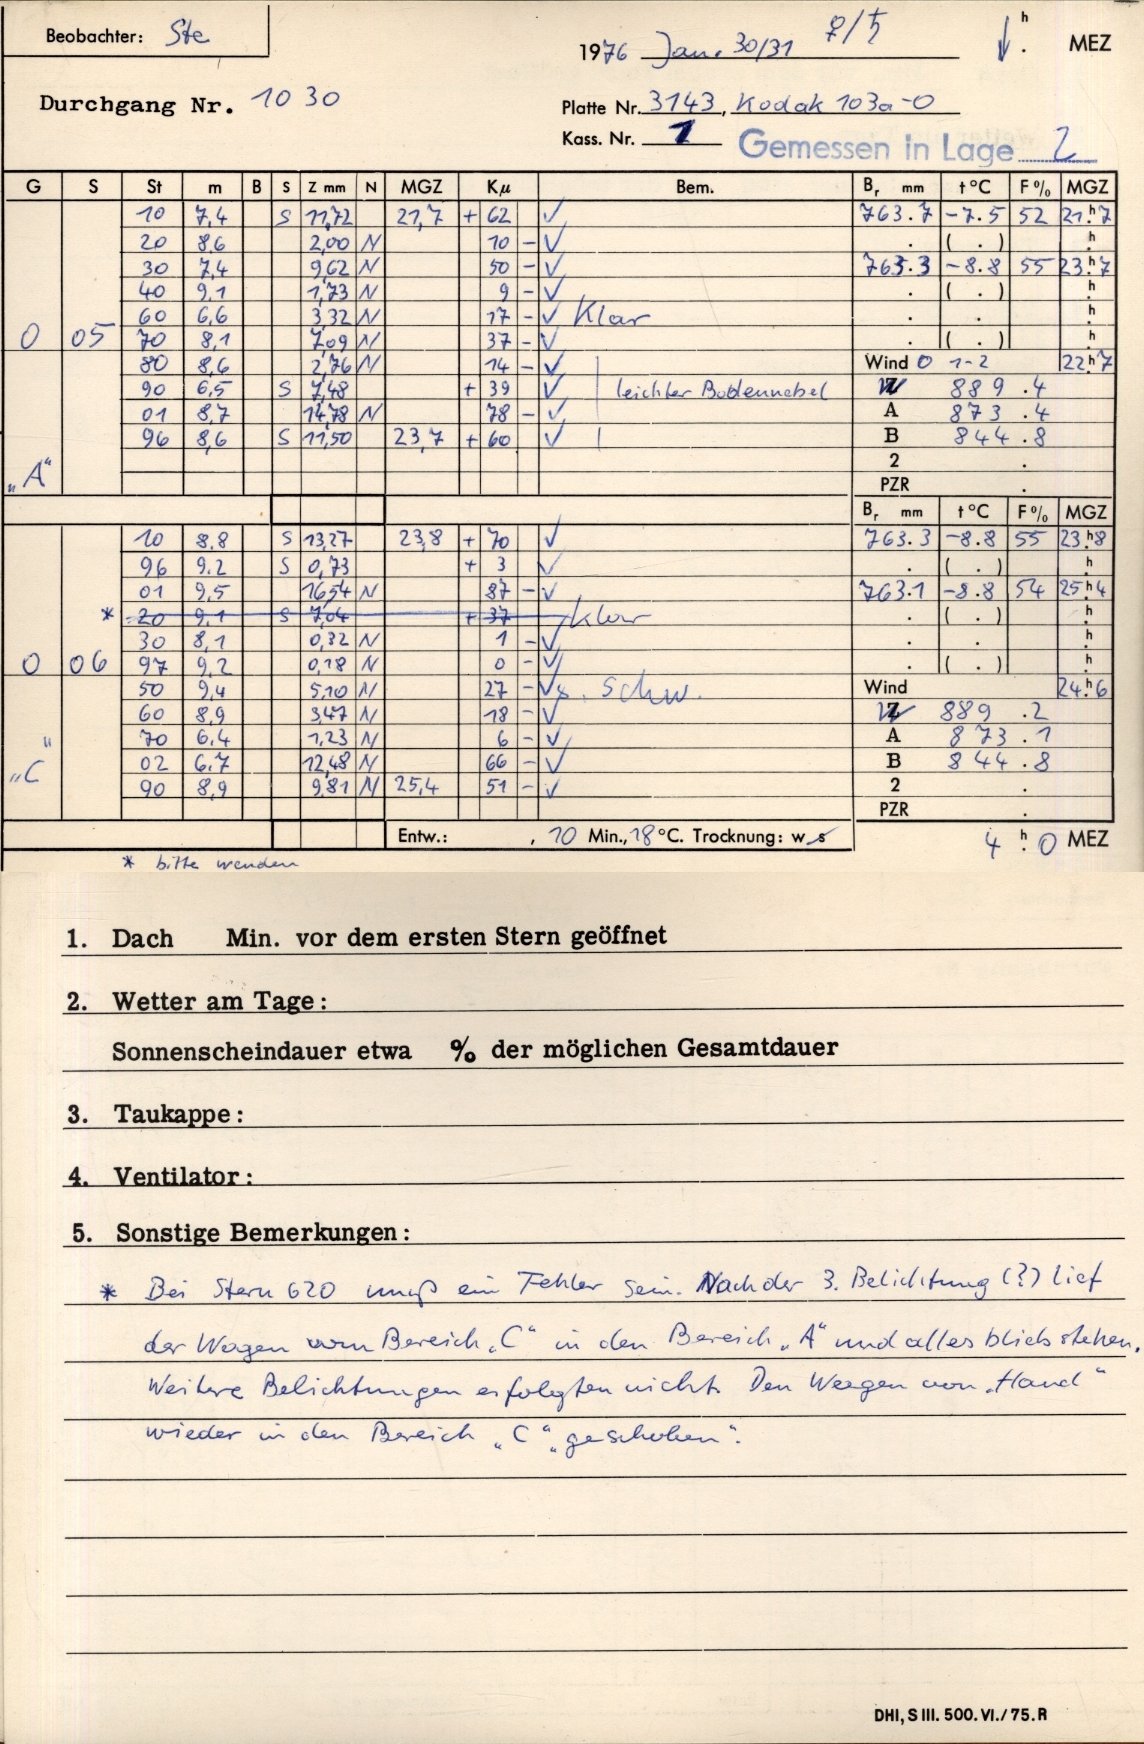 Beobachter: Ste
1976 Jan. 30/31 ♀/♄ h . MEZ
Durchgang Nr. 1030
Platte Nr. 3143, Kodak 103a-O
Kass. Nr. 1 Gemessen in Lage 2
G S St m B S Z mm N MGZ Kμ Bem. Br mm t °C F % MGZ
10 7,4 S 11,72 21,7 + 62 ✓ 763.7 -7.5 52 21h7
20 8,6 2,00 N 10 - ✓ . ( . ) h
30 7,4 9,62 N 50 - ✓ 763.3 -8.8 55 23h7
40 9,1 1,73 N 9 - ✓ . ( . ) h
60 6,6 3,32 N 17 - ✓ Klar . . h
0 05 70 8,1 7,09 N 37 - ✓ . ( . ) h
80 8,6 2,76 N 14 - ✓ Wind 0 1-2 22h7
90 6,5 S 7,48 + 39 ✓ leichter Bodennebel 889.4
01 8,7 14,78 N 78 - ✓ A 873.4
96 8,6 S 11,50 23,7 + 60 ✓ B 844.8
2 .
„A“ PZR .
Br mm t °C F % MGZ
10 8.8 S 13,27 23,8 + 70 ✓ 763.3 -8.8 55 23h8
96 9.2 S 0,73 + 3 ✓ . ( . ) h
01 9,5 16,54 N 87 - ✓ 763.1 -8.8 54 25h4
* 20 9,1 S 7,04 + 37 klar . ( . ) h
30 8,1 0,32 N 1 - ✓ . . h
0 06 97 9,2 0,18 N 0 - ✓ . ( . ) h
50 9,4 5,10 N 27 - ✓ s. schw. Wind 24h6
60 8,9 3,47 N 18 - ✓ 889.2
70 6,4 1,23 N 6 - ✓ A 873.1
„C“ 02 6.7 12,48 N 66 - ✓ B 844.8
90 8,9 9,81 N 25,4 51 - ✓ 2 .
PZR .
Entw.: , 10 Min., 18 °C. Trocknung: w s 4 h. 0 MEZ
* bitte wenden
1. Dach Min. vor dem ersten Stern geöffnet
2. Wetter am Tage:
Sonnenscheindauer etwa % der möglichen Gesamtdauer
3. Taukappe:
4. Ventilator:
5. Sonstige Bemerkungen:
* Bei Stern 620 muß ein Fehler sein. Nach der 3. Belichtung (?) lief
der Wagen vom Bereich „C“ in den Bereich „A“ und alles blieb stehen.
Weitere Belichtungen erfolgten nicht. Den Wagen von „Hand“
wieder in den Bereich „C“ „geschoben“.
DHI, S III. 500. VI./75. R